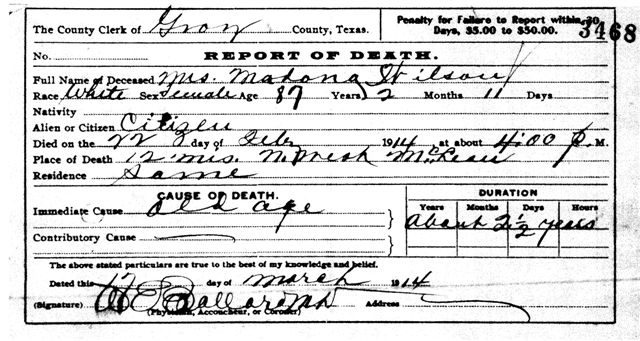 The County Clerk of Gray County, Texas.
Penalty for Failure to Report within 30 Days, $5.00 to $50.00.
3468
No. REPORT OF DEATH.
Full Name of Deceased Mrs. Madona Wilson
Race White Sex Female Age 87 Years 2 Months 11 Days
Nativity
Alien or Citizen Citizen
Died on the 22 day of Feb 1914 at about 4:00 P. M.
Place of Death 12 mis. N. West McLean
Residence Same
CAUSE OF DEATH.
DURATION
Immediate Cause old age
Years Months Days Hours
About 2 1/2 years
Contributory Cause
The above stated particulars are true to the best of my knowledge and belief.
Dated this 12 day of March 1914
(Signature) Ballard MD Address
(Physician, Accoucheur, or Coroner)